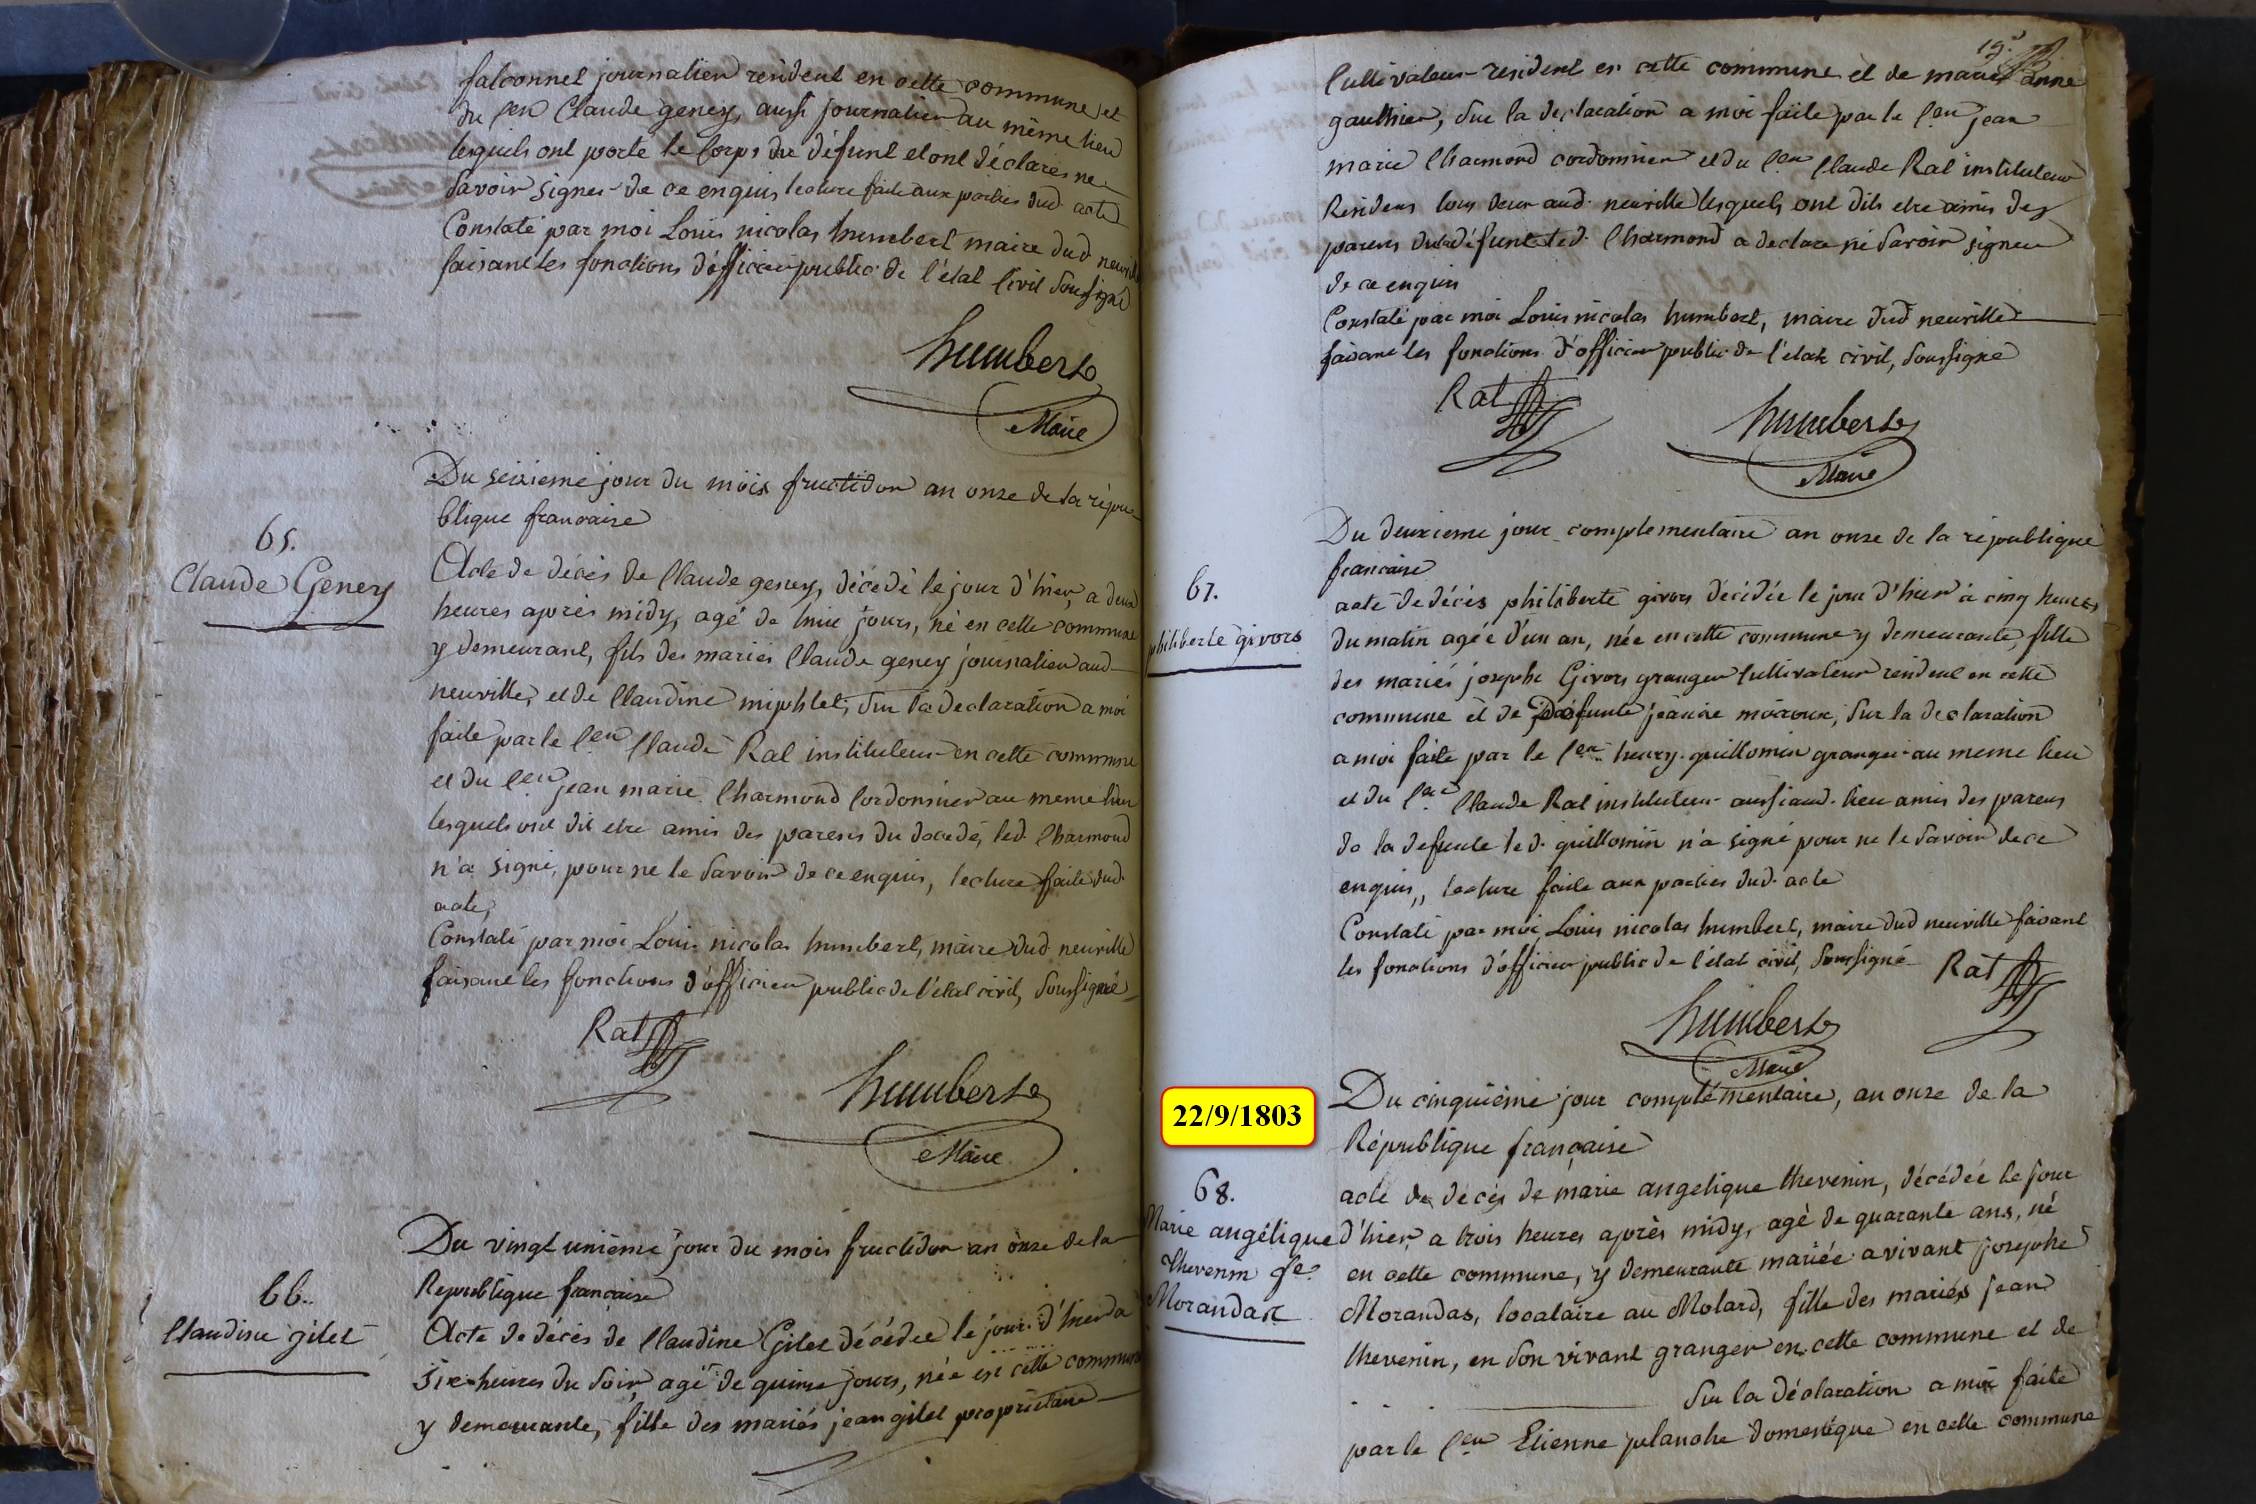 falconnet journalier résident en cette commune et
du Cen Claude geney, aussi journalier au même lieu
lesquels ont porté le Corps du défunt et ont déclarés ne
Savoir signer de ce enquis lecture faite aux parties dud. acte
Constaté par moi Louis nicolas humbert maire dud neuville
faisant les fonctions d'officier public de l'état Civil Soussigné
humbert
Maire
Du seixieme jour du mois fructidor an onze de la répu-
blique francaise
65.
Claude Geney
Acte de décès de Claude geney, décédé le jour d'hier, a deux
heures après midy, agé de huit jours, né en cette commune
y demeurant, fils des mariés Claude geney journalier aud
neuville, et de Claudine miphlet, Sur la declaration a moi
faite par le Cen Claude Rat instituteur en cette commune
et du Cen jean marie Charmond Cordonnier au meme lieu
lesquels ont dit etre amis des parens du décédé, led. Charmond
n'a signé, pour ne le Savoir de ce enquis, lecture faite dud.
acte,
Constaté par moi Louis nicolas humbert, maire dud neuville
faisant les fonctions d'officier public de l'état civil, Soussigné
Rat
humbert
Maire
Du vingt unième jour du mois fructidor an onze de la
Republique francaise
66.
Claudine gilet
Acte de décès de Claudine Gilet décédée le jour d'hier a
six heures du Soir agé de quinze jours, née en cette commune
y demeurante, fille des mariés jean gilet propriétaire
19.
Cultivateur résident en cette commune et de marie anne
gauthier, Sur la declaration a moi faite par le Cen jean
marie Charmond cordonnier et du Cen Claude Rat instituteur
Residens tous deux aud. neuville lesquels ont dits etre amis des
parens de la défunte led. Charmond a declare ne Savoir signer
de ce enquis
Constaté par moi Louis nicolas humbert, maire dud neuville
faisant les fonctions d'officier public de l'état civil, Soussigné
Rat
humbert
Maire
Du deuxieme jour complementaire an onze de la république
francaise
67.
philiberte givors
acte de décès philiberte givors décédée le jour d'hier à cinq heures
du matin agée d'un an, née en cette commune y demeurante, fille
des mariés josephe Givors granger Cultivateur résident en cette
commune et de Défunte jeanne moiroux, Sur la declaration
a moi faite par le Cen henry guillomin granger au meme lieu
et du Cen Claude Rat instituteur aussi aud. lieu amis des parens
de la defunte led. guillomin n'a signé pour ne le Savoir de ce
enquis,, lecture faite aux parties dud. acte
Constaté par moi Louis nicolas humbert, maire dud neuville faisant
les fonctions d'officier public de l'état civil, Soussigné
Rat
humbert
Maire
22/9/1803
Du cinquième jour complémentaire, an onze de la
République française
68.
Marie angélique
thevenin fe.
Morandas
acte de décès de marie angelique thevenin, décédée le jour
d'hier, a trois heures après midy, agé de quarante ans, né
en cette commune, y demeurante mariée a vivant josephe
Morandas, locataire au Molard, fille des mariés jean
thevenin, en Son vivant granger en cette commune et de
Sur la déclaration a moi faite
par le Cen Etienne planche domestique en cette commune